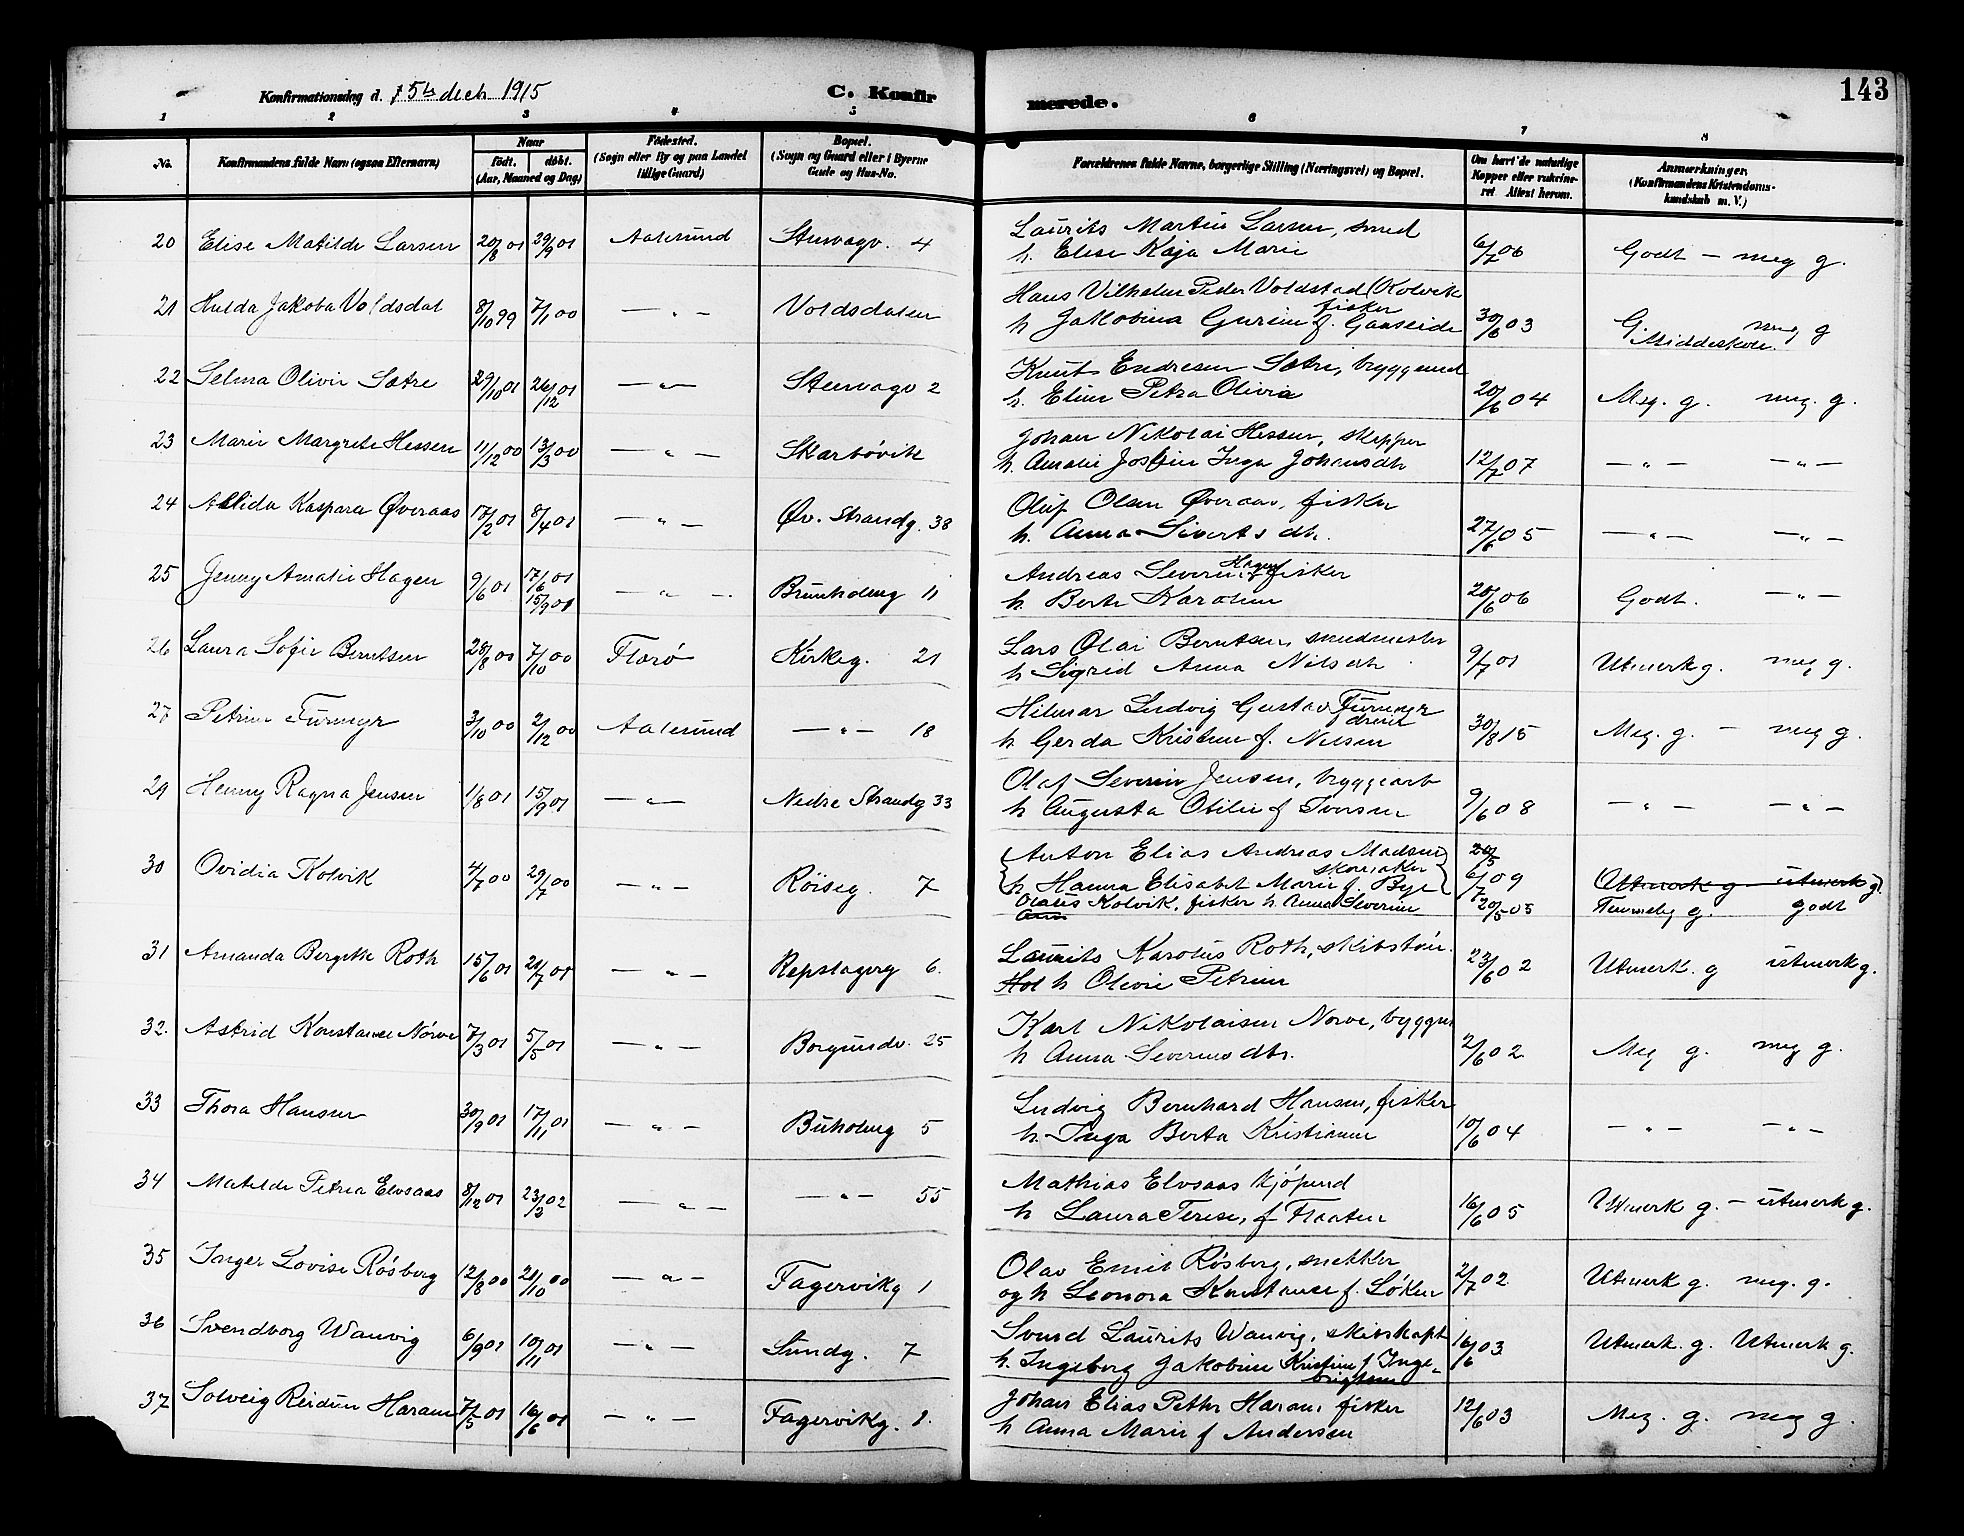 143
Konfirmationsdag d. 5te decb 1915 C. Konfirmerede.
1 2 3 4 5 6 7 8
No. Konfirmandens fulde Navn (ogsaa Efternavn) Naar født. døbt. (Aar, Maaned og Dag) Fødested. (Sogn eller By og paa Landet tillige Gaard) Bopæl. (Sogn og Gaard eller i Byerne Gade og Hus-No. Forældrenes fulde Navne, borgerlige Stilling (Næringsvei) og Bopæl. Om havt de naturlige Kopper eller vaksineret Attest herom. Anmærkninger. (Konfirmandens Kristendomskundskab m. V.)
20 Elise Matilde Larsen 20/8 01 29/9 01 Aalesund Stenvagv. 4 Laurits Martin Larsen, smed 6/7 06 Godt – meg g.
h. Elise Kaja Marie
21 Hulda Jakoba Voldsdal 8/10 99 7/1 00 — „ — Voldsdalen Hans Vilhelm Peder Voldstad (Kolvik fisker 30/6 03 G. meg g
h Jakobina Gurine f. Gaaseide Middeskole
22 Selma Olivie Sætre 29/10 01 26/12 01 — „ — Stenvagv 2 Knut Endresen Sætre, bryggemd 20/6 04 Meg. g. meg. g.
h. Eline Petra Olivia
23 Marie Margrete Hessen 11/12 00 13/3 00 — „ — Skarbövik Johan Nikolai Hessen, skipper 12/7 07 — „ — — „ —
h. Amalie Josfine Inga Johansdtr
24 Alida Kaspara Øveraas 17/2 01 8/4 01 — „ — Øv. Strandg. 38 Oluf Olsen Øveraas, fisker 27/6 05 — „ — — „ —
h. Anna Sivertsdtr.
25 Jenny Amalie Hagen 9/6 01 17/6 01 15/9 01 — „ — Brunholmg 11 Andreas Severin Hagen fisker 20/6 06 Godt. — „ —
h. Berte Karoline
26 Laura Sofie Berntsen 28/8 00 7/10 00 Florö Kirkeg. 21 Lars Olai Berntsen, smedmester 9/7 01 Utmerk g. meg g.
h Sigrid Anna Nilsdtr
27 Petrine Furmyr 3/10 00 2/12 00 Aalesund — „ — 18 Hilmar Ludvig Gustav Furmyr 30/8 15 Meg. g. – meg g.
h Gerda Kristine f. Nilsen
29 Henny Ragna Jensen 1/8 01 15/9 01 — „ — Nedre Strandg 33 Olaf Severin Jensen, bryggearb 9/6 08 — „ — — „ —
h Augusta Otilie f Iversen
30 Ovidia Kolvik 4/7 00 29/7 00 — „ — Röiseg. 7 Anton Elias Andreas Madsen skomaker 20/5 6/7 09 Utmerk g utmerk g.
h Hanna Elisabet Marie f. Bye
Olaus Kolvik, fisker h. Anna Severine 20/5 05 Temmelig g. godt
31 Amanda Bergitte Roth 15/6 01 21/7 01 — „ — Repslagerg 6. Laurits Karolus Roth, skibstöm. 23/6 02 Utmerk. g utmerk g.
h Olivie Petrine
32. Astrid Konstanse Nörve 7/3 01 5/5 01 — „ — Borgundv. 25 Karl Nikolaisen Norve, bygger 2/6 02 Meg g. meg g.
h Anna Severinsdtr.
33 Thora Hansen 30/9 01 17/11 01 — „ — Buholmg 5 Ludvig Bernhard Hansen, fisker 10/6 04 — „ — — „ —
h. Inga Berta Kristianne
34 Matilde Petrea Elvsaas 8/12 01 23/2 02 — „ — — „ — 55 Mathias Elvsaas kjöpmd 16/6 05 Utmerk g. – utmerk g.
h Laura Terese, f Flaaten
35 Inger Lovise Rösberg 12/8 00 21/10 00 — „ — Fagervikg 1 Olav Emil Rösberg, snekker 2/7 02 Utmerk g. meg. g.
og h Leonora Konstanse f. Löken
36 Svendborg Wanvig 6/9 01 10/11 01 — „ — Sundg. 7 Svend Laurits Wanvig, skibskapt 16/6 03 Utmerk. g. Utmerk g.
h. Ingeborg Jakobine Kristine f. Ingebrigtsen
37 Solveig Reidun Haram 7/5 01 16/6 01 — „ — Fagervikg. 1. Johan Elias Petter Haram fisker 12/6 03 Meg. g. meg g.
h Anna Marie f Andersen